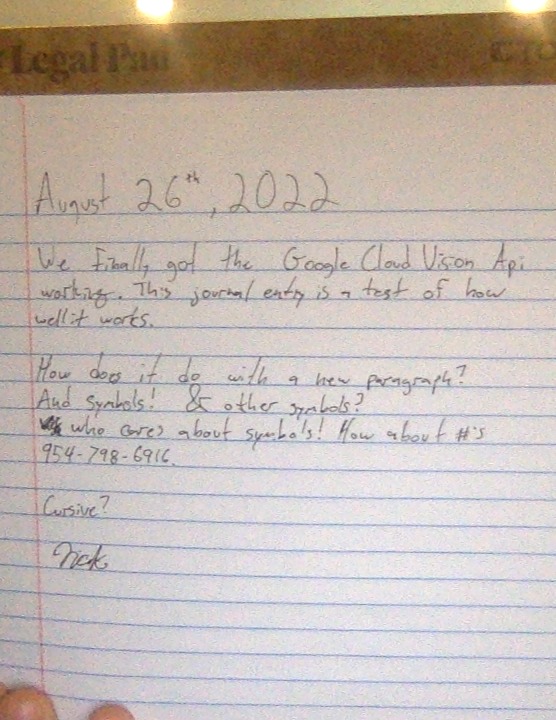 Legal Pad
August 26th, 2022
We finally got the Google Cloud Vision Api
working. This journal entry is a test of how
well it works.
How does it do with a new paragraph?
And symbols! & other symbols?
who cares about symbols! How about #'s
954-798-6916.
Cursive?
Nick